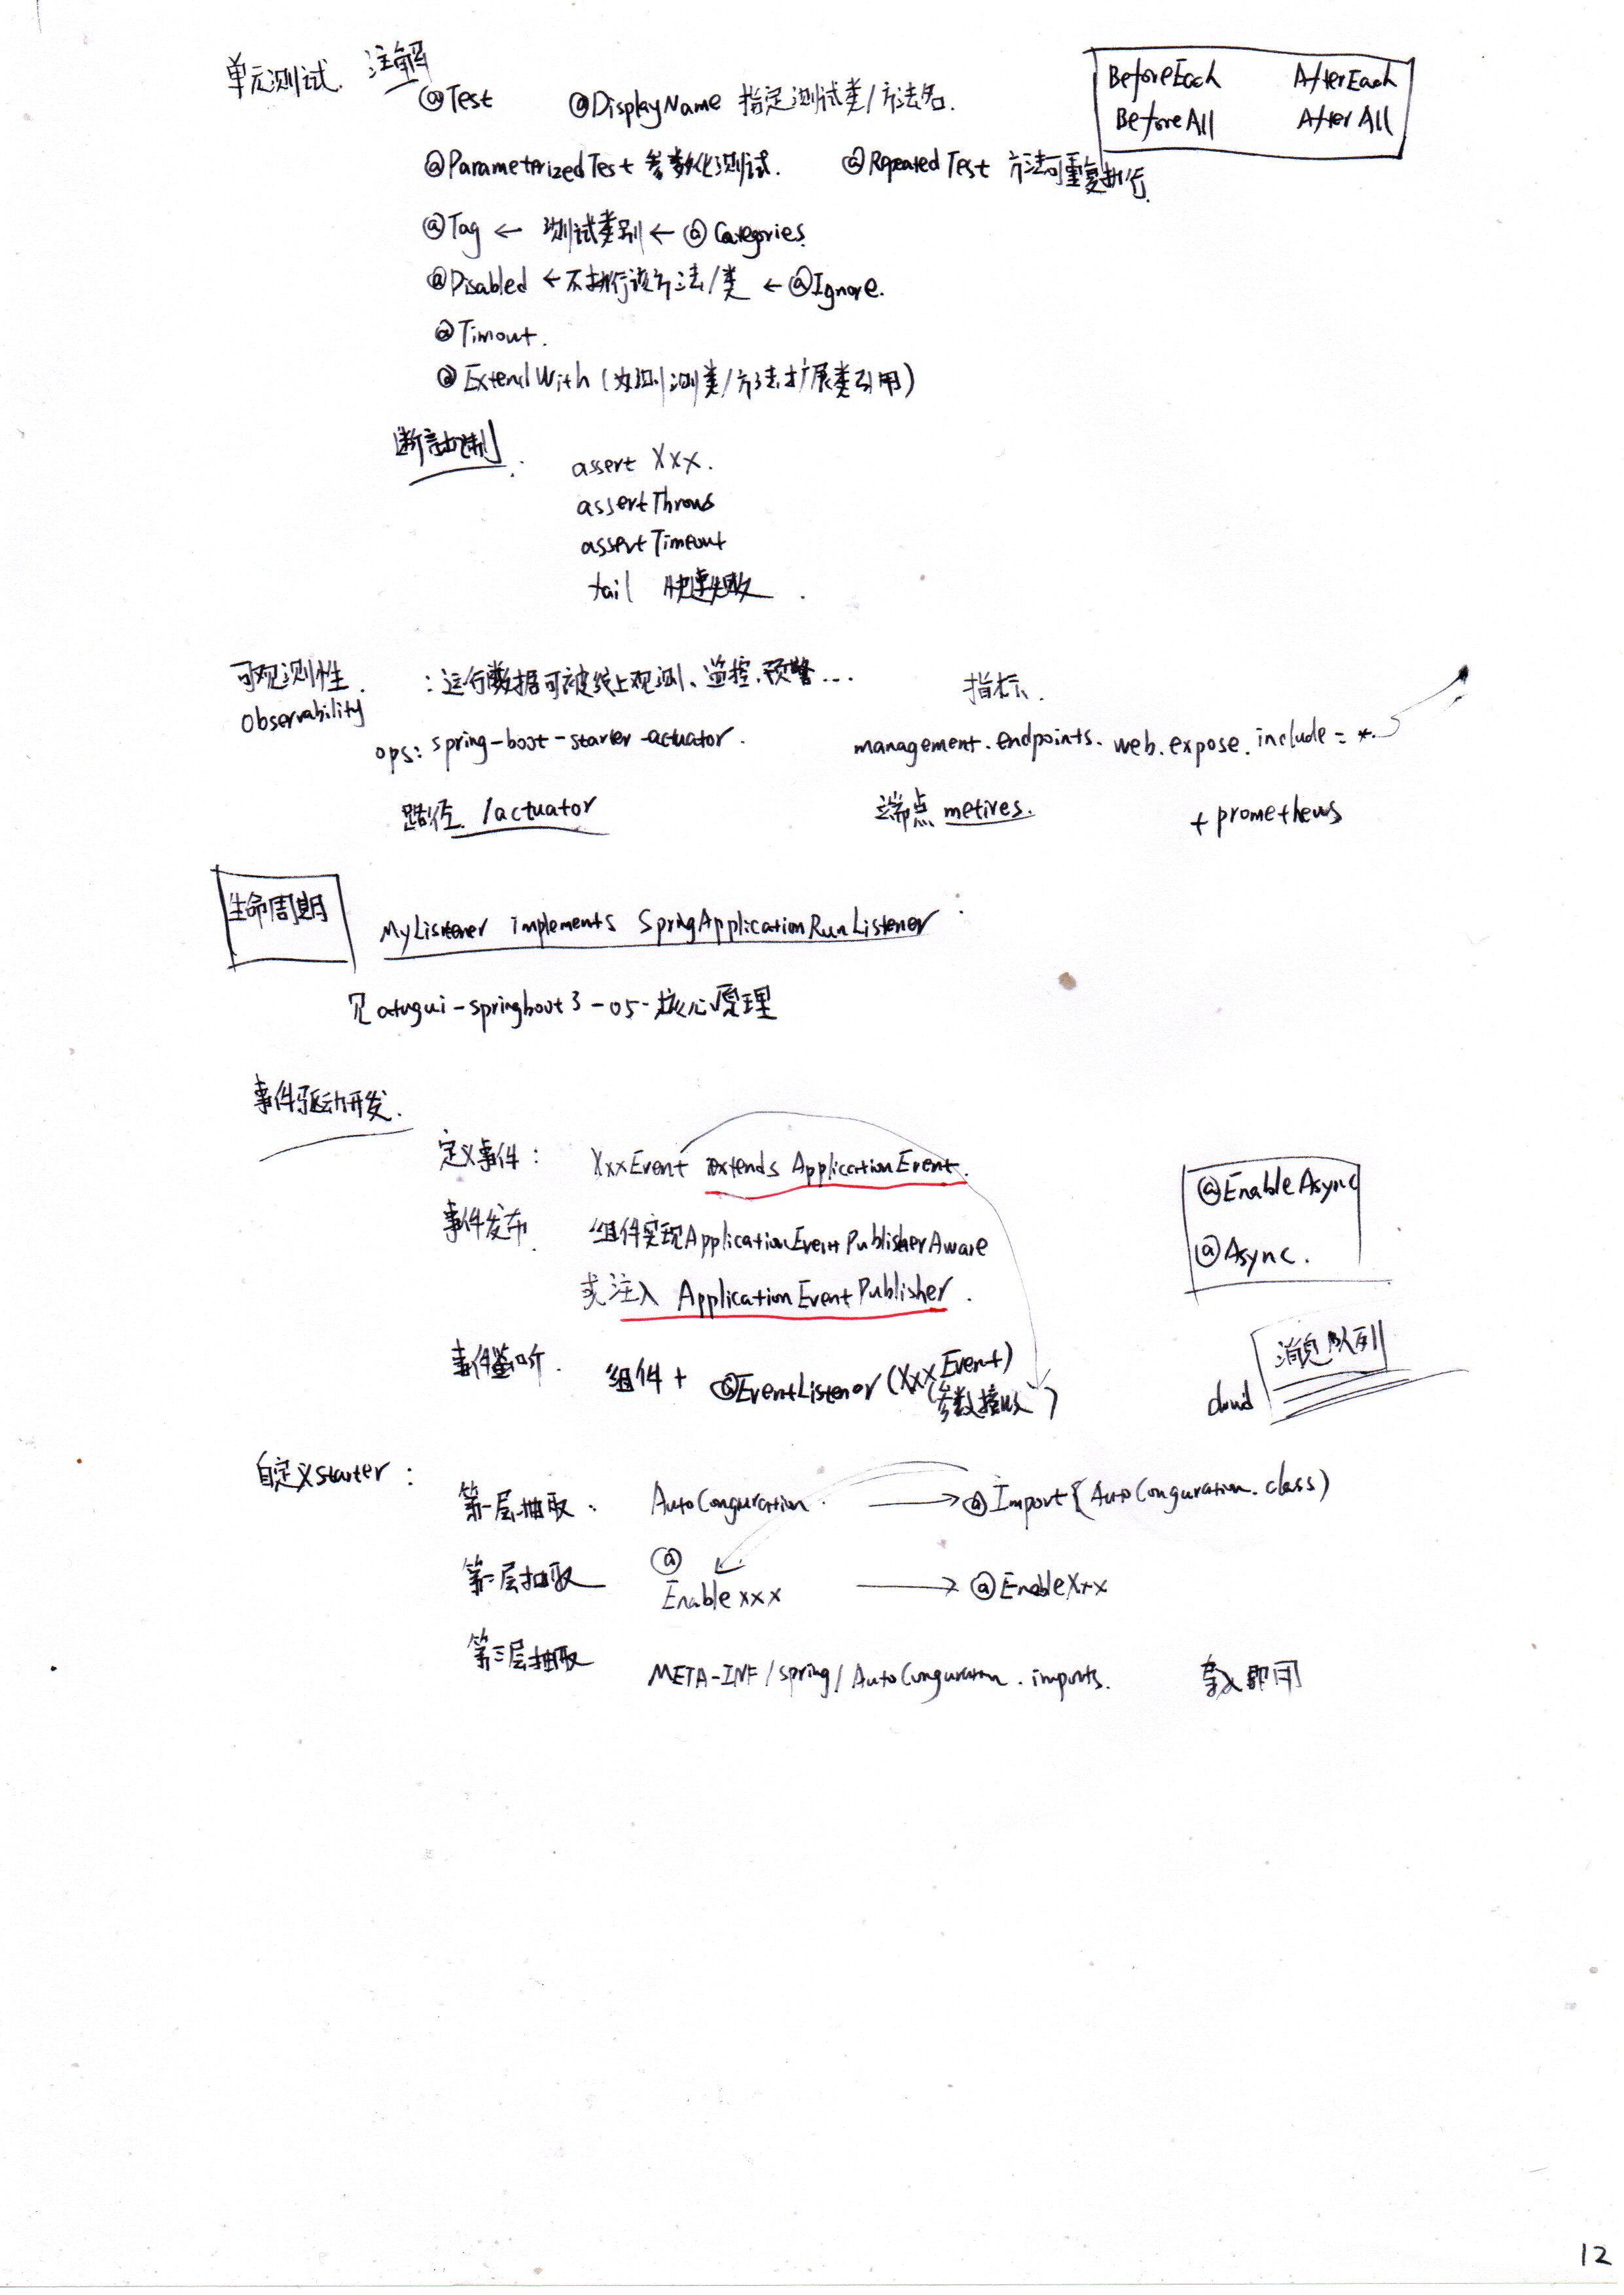 单元测试. 注解
BeforeEach AfterEach
BeforeAll AfterAll
@Test @DisplayName 指定测试类/方法名.
@ParameterizedTest 参数化测试. @RepeatedTest 方法可重复执行
@Tag ← 测试类别 ← @Categories.
@Disabled ← 不执行该方法/类 ← @Ignore.
@Timout.
@ExtendWith (为测测类/方法扩展类引用)
断言机制:
assert Xxx.
assertThrows
assertTimeout
fail 快速失败.
可观测性. : 运行数据可被线上观测、监控、预警... 指标.
Observability
ops: spring-boot-starter-actuator. management.endpoints.web.expose.include = *.
路径. /actuator 端点 metires. + prometheus
生命周期
MyListener implements SpringApplicationRunListener
见 atugui-springboot3-05-核心原理
事件驱动开发.
定义事件: XxxEvent extends ApplicationEvent.
事件发布. 组件实现ApplicationEventPublisherAware
或注入 ApplicationEventPublisher.
事件监听. 组件 + @EventListener (XxxEvent)
(参数接收)
@EnableAsync
@Async.
消息队列
cloud
自定义starter:
第一层抽取: AutoConguration. → @Import{AutoConguration.class)
第二层抽取 @Enable xxx → @EnableXxx
第三层抽取 META-INF/spring/AutoConguration.imports. 即用
12